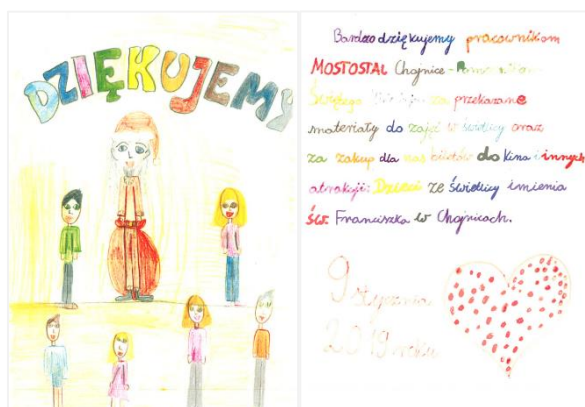 DZIĘKUJEMY
Bardzo dziękujemy pracownikom
MOSTOSTAL Chojnice - Pomocnikom
Świętego Mikołaja za przekazane
materiały do zajęć w świetlicy oraz
za zakup dla nas biletów do kina i innych
atrakcji. Dzieci ze świetlicy imienia
św. Franciszka w Chojnicach.
9 stycznia
2019 roku